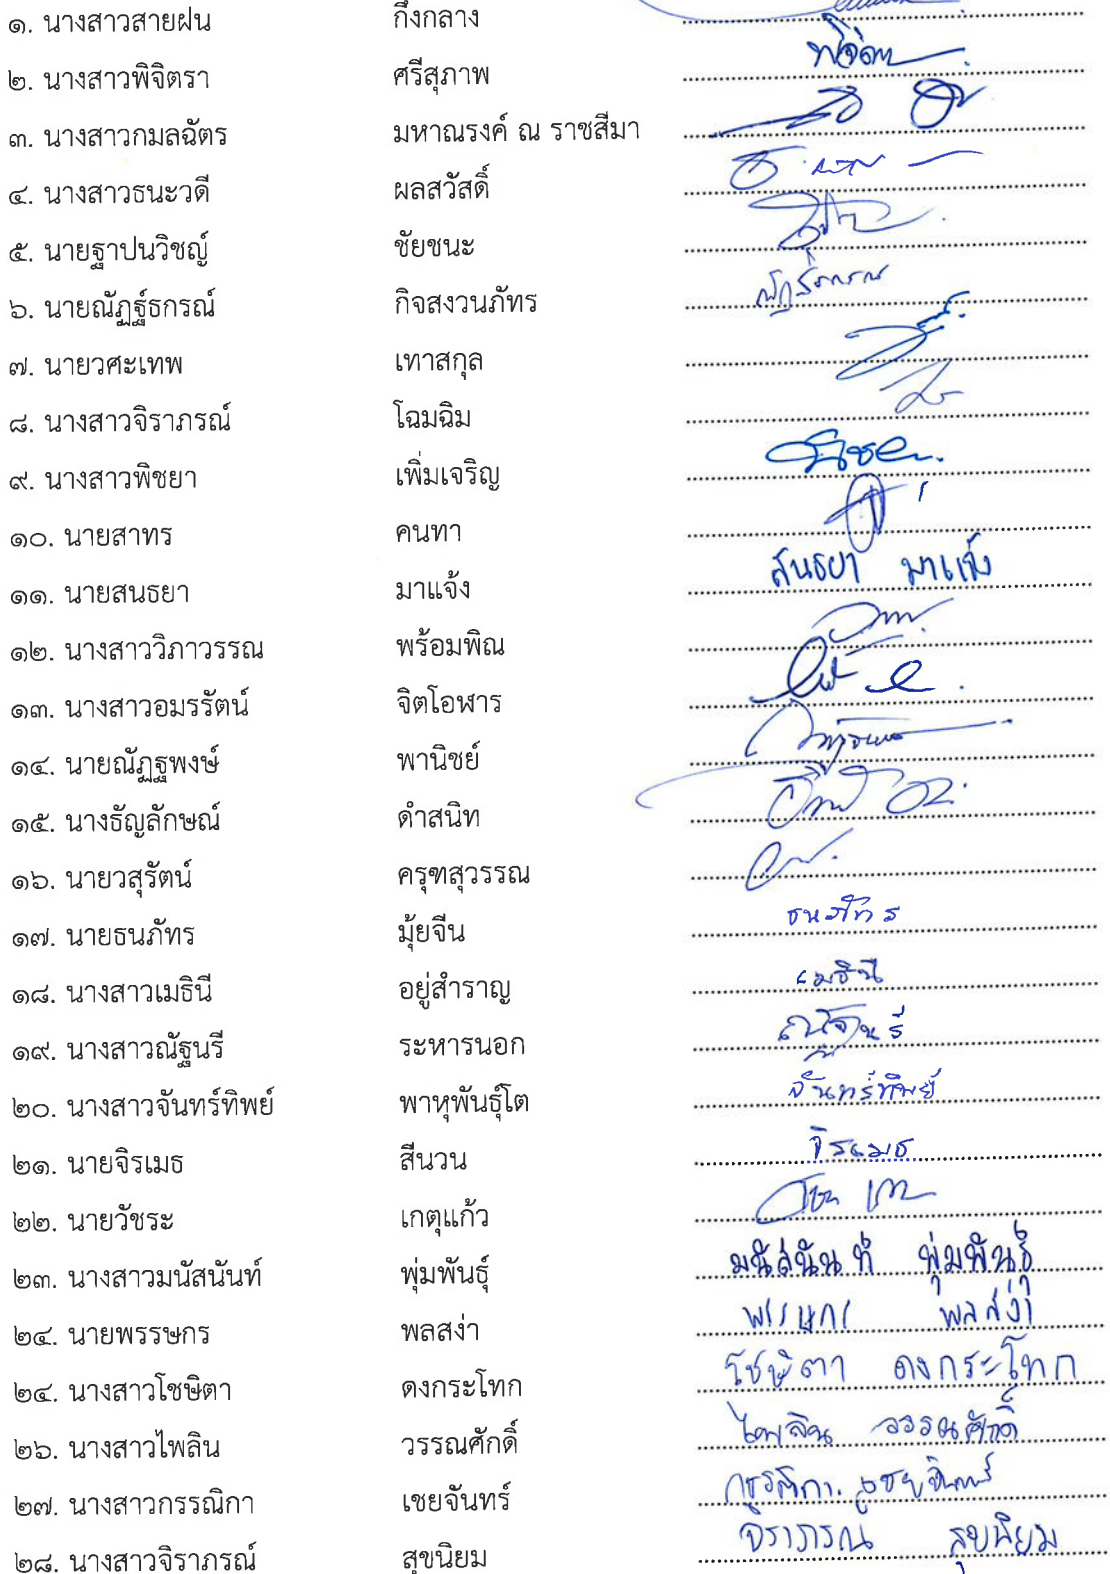 ๑. นางสาวสายฝน กึงกลาง
๒. นางสาวพิจิตรา ศรีสุภาพ
๓. นางสาวกมลฉัตร มหาณรงค์ ณ ราชสีมา
๔. นางสาวธนะวดี ผลสวัสดิ์
๕. นายฐาปนวิชญ์ ชัยชนะ
๖. นายณัฏฐ์ธกรณ์ กิจสงวนภัทร
๗. นายวศะเทพ เทาสกุล
๘. นางสาวจิราภรณ์ โฉมฉิม
๙. นางสาวพิชยา เพิ่มเจริญ
๑๐. นายสาทร คนทา
๑๑. นายสนธยา มาแจ้ง สนธยา มาแจ้ง
๑๒. นางสาววิภาวรรณ พร้อมพิณ
๑๓. นางสาวอมรรัตน์ จิตโอหาร
๑๔. นายณัฏฐพงษ์ พานิชย์
๑๕. นางธัญลักษณ์ ดำสนิท
๑๖. นายวสุรัตน์ ครุฑสุวรรณ
๑๗. นายธนภัทร มุ้ยจีน ธนภัทร
๑๘. นางสาวเมธินี อยู่สำราญ เมธินี
๑๙. นางสาวณัฐนรี ระหารนอก ณัฐนรี
๒๐. นางสาวจันทร์ทิพย์ พาหุพันธุ์โต จันทร์ทิพย์
๒๑. นายจิรเมธ สีนวน จิรเมธ
๒๒. นายวัชระ เกตุแก้ว
๒๓. นางสาวมนัสนันท์ พุ่มพันธุ์ มนัสนันท์ พุ่มพันธุ์
๒๔. นายพรรษกร พลสง่า พรรษกร พลสง่า
๒๔. นางสาวโชษิตา ดงกระโทก โชษิตา ดงกระโทก
๒๖. นางสาวไพลิน วรรณศักดิ์ ไพลิน วรรณศักดิ์
๒๗. นางสาวกรรณิกา เชยจันทร์ กรรณิกา เชยจันทร์
๒๘. นางสาวจิราภรณ์ สุขนิยม จิราภรณ์ สุขนิยม